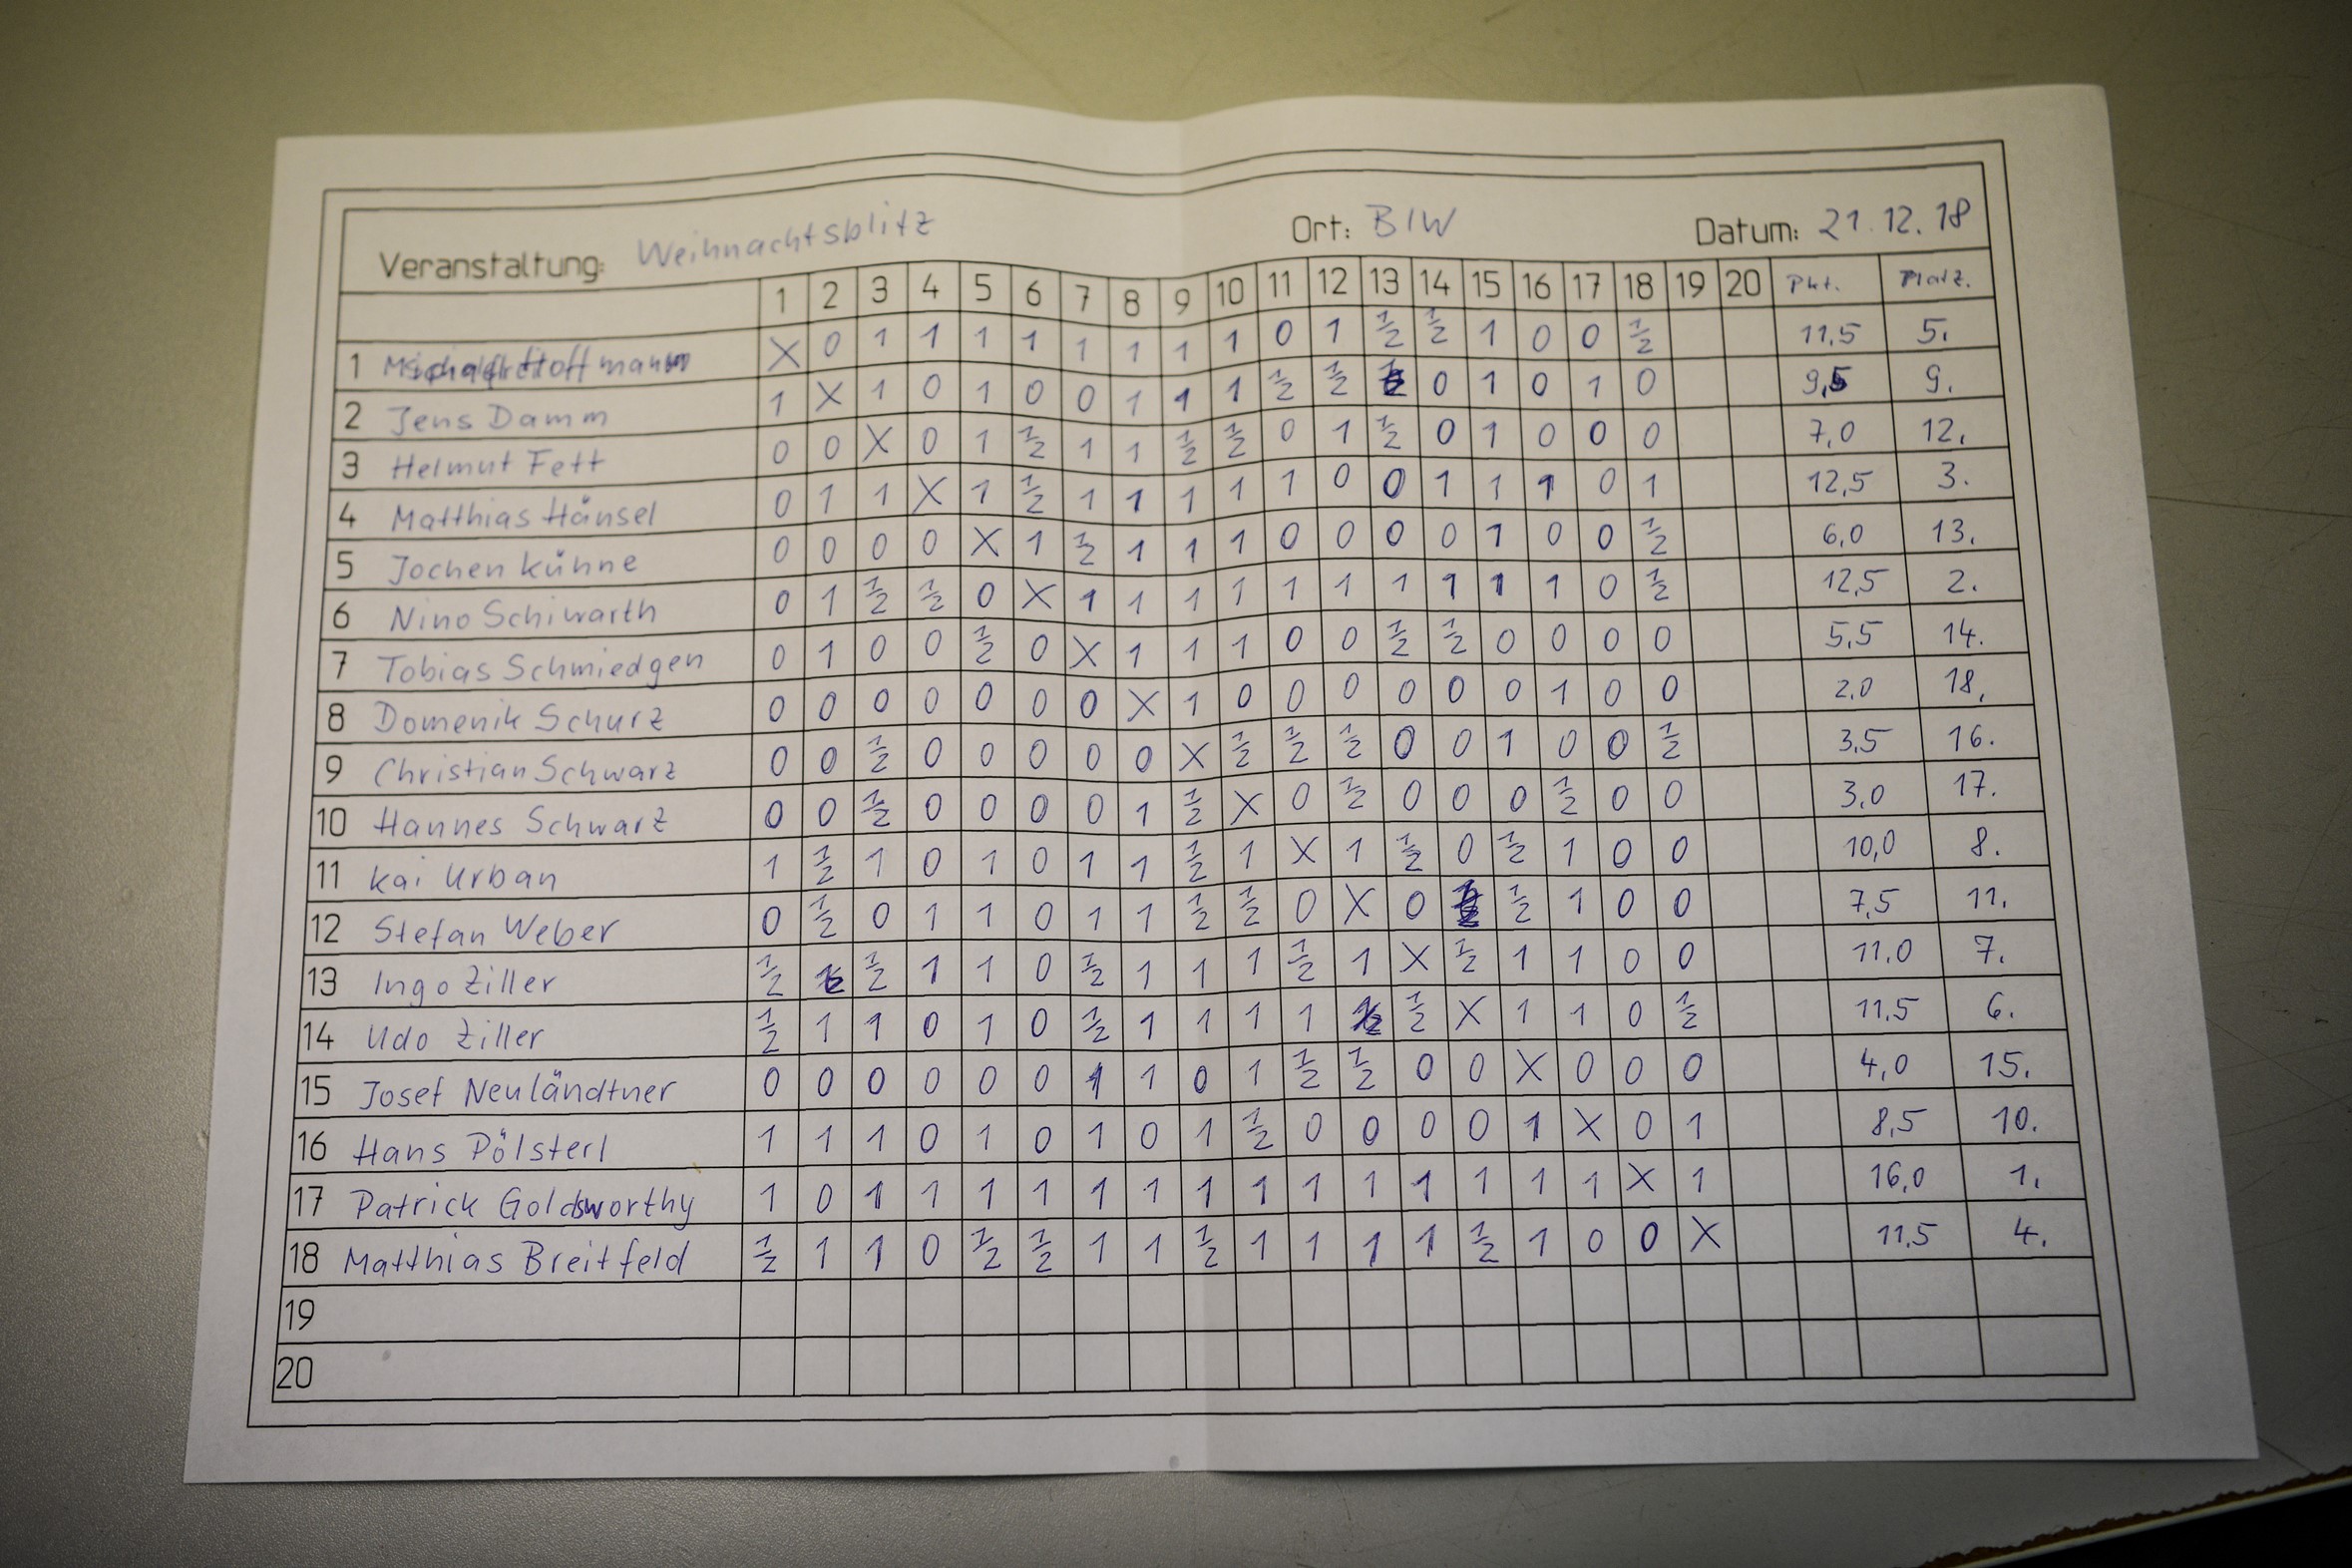 Veranstaltung: Weihnachtsblitz Ort: BIW Datum: 21.12.18
1 2 3 4 5 6 7 8 9 10 11 12 13 14 15 16 17 18 19 20 Pkt. Platz.
1 X 0 1 1 1 1 1 1 1 1 0 1 ½ ½ 1 0 0 ½ 11,5 5.
2 Jens Damm 1 X 1 0 1 0 0 1 1 1 ½ ½ 0 1 0 1 0 9,5 9.
3 Helmut Fett 0 0 X 0 1 ½ 1 1 ½ ½ 0 1 ½ 0 1 0 0 0 7,0 12.
4 Matthias Hänsel 0 1 1 X 1 ½ 1 1 1 1 1 0 0 1 1 1 0 1 12,5 3.
5 Jochen Kühne 0 0 0 0 X 1 ½ 1 1 1 0 0 0 0 1 0 0 ½ 6,0 13.
6 Nino Schiwarth 0 1 ½ ½ 0 X 1 1 1 1 1 1 1 1 1 1 0 ½ 12,5 2.
7 Tobias Schmiedgen 0 1 0 0 ½ 0 X 1 1 1 0 0 ½ ½ 0 0 0 0 5,5 14.
8 Domenik Schurz 0 0 0 0 0 0 0 X 1 0 0 0 0 0 0 1 0 0 2,0 18.
9 Christian Schwarz 0 0 ½ 0 0 0 0 0 X ½ ½ ½ 0 0 1 0 0 ½ 3,5 16.
10 Hannes Schwarz 0 0 ½ 0 0 0 0 1 ½ X 0 ½ 0 0 0 ½ 0 0 3,0 17.
11 Kai Urban 1 ½ 1 0 1 0 1 1 ½ 1 X 1 ½ 0 ½ 1 0 0 10,0 8.
12 Stefan Weber 0 ½ 0 1 1 0 1 1 ½ ½ 0 X 0 ½ 1 0 0 7,5 11.
13 Ingo Ziller ½ ½ 1 1 0 ½ 1 1 1 ½ 1 X ½ 1 1 0 0 11,0 7.
14 Udo Ziller ½ 1 1 0 1 0 ½ 1 1 1 1 ½ X 1 1 0 ½ 11,5 6.
15 Josef Neuländtner 0 0 0 0 0 0 1 1 0 1 ½ ½ 0 0 X 0 0 0 4,0 15.
16 Hans Pölsterl 1 1 1 0 1 0 1 0 1 ½ 0 0 0 0 1 X 0 1 8,5 10.
17 Patrick Goldsworthy 1 0 1 1 1 1 1 1 1 1 1 1 1 1 1 1 X 1 16,0 1.
18 Matthias Breitfeld ½ 1 1 0 ½ ½ 1 1 ½ 1 1 1 1 ½ 1 0 0 X 11,5 4.
19
20